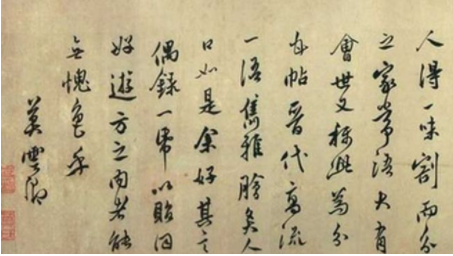 人得一味割而分
之家常語大有
會世又稱為分
甘帖晉代高流
一語雋雅膾炙人
口如是余好其言
偶錄一帋以貽同
好遊方之内者能
無愧色乎
莫雲卿